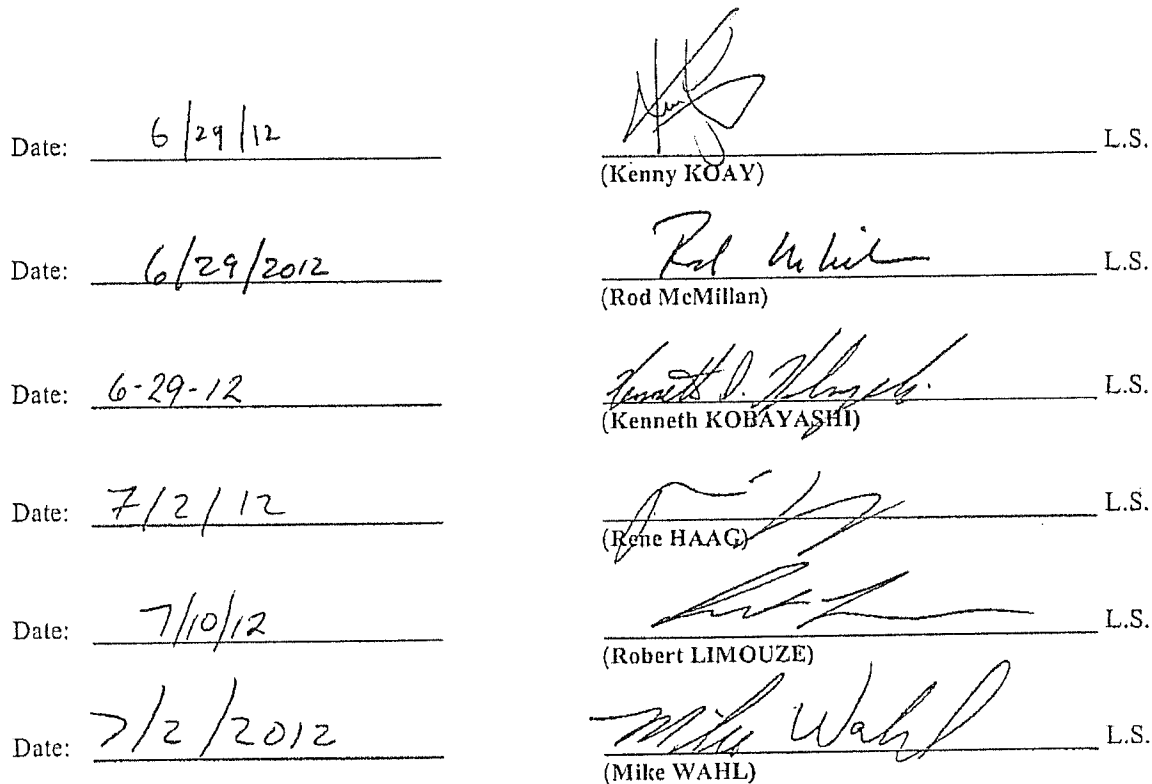 Date: 6/29/12 L.S.
(Kenny KOAY)
Date: 6/29/2012 Rod McMillan L.S.
(Rod McMillan)
Date: 6-29-12 Kenneth D. Kobayashi L.S.
(Kenneth KOBAYASHI)
Date: 7/2/12 L.S.
(Rene HAAG)
Date: 7/10/12 L.S.
(Robert LIMOUZE)
Date: 7/2/2012 Mike Wahl L.S.
(Mike WAHL)